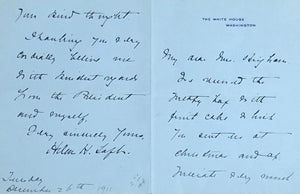 THE WHITE HOUSE
WASHINGTON
My dear Mrs.
I received the
box & the
fruit cake which
you sent us at
Christmas and
very much
your kind thought
Thanking you very
cordially believe me
with kindest regards
from the President
and myself,
Very sincerely yours,
Helen H. Taft
Tuesday
December 26th 1911